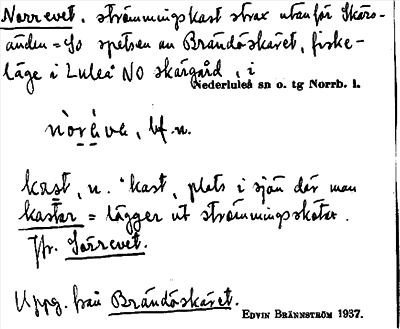 Norrevet, strömmingskast strax utanför Skärs-
änden = So spetsen an Brändöskäret, fiske-
läge i Luleå NO skärgård, i
Nederluleå sn o. tg Norrb. l.
nòréve, bf. n.
kast, n. "kast, plats i sjön där man
kastar = lägger ut strömmingsskötar.
Jfr. Sörrevet.
Uppg. från Brändöskäret.
EDVIN BRÄNNSTRÖM 1937.